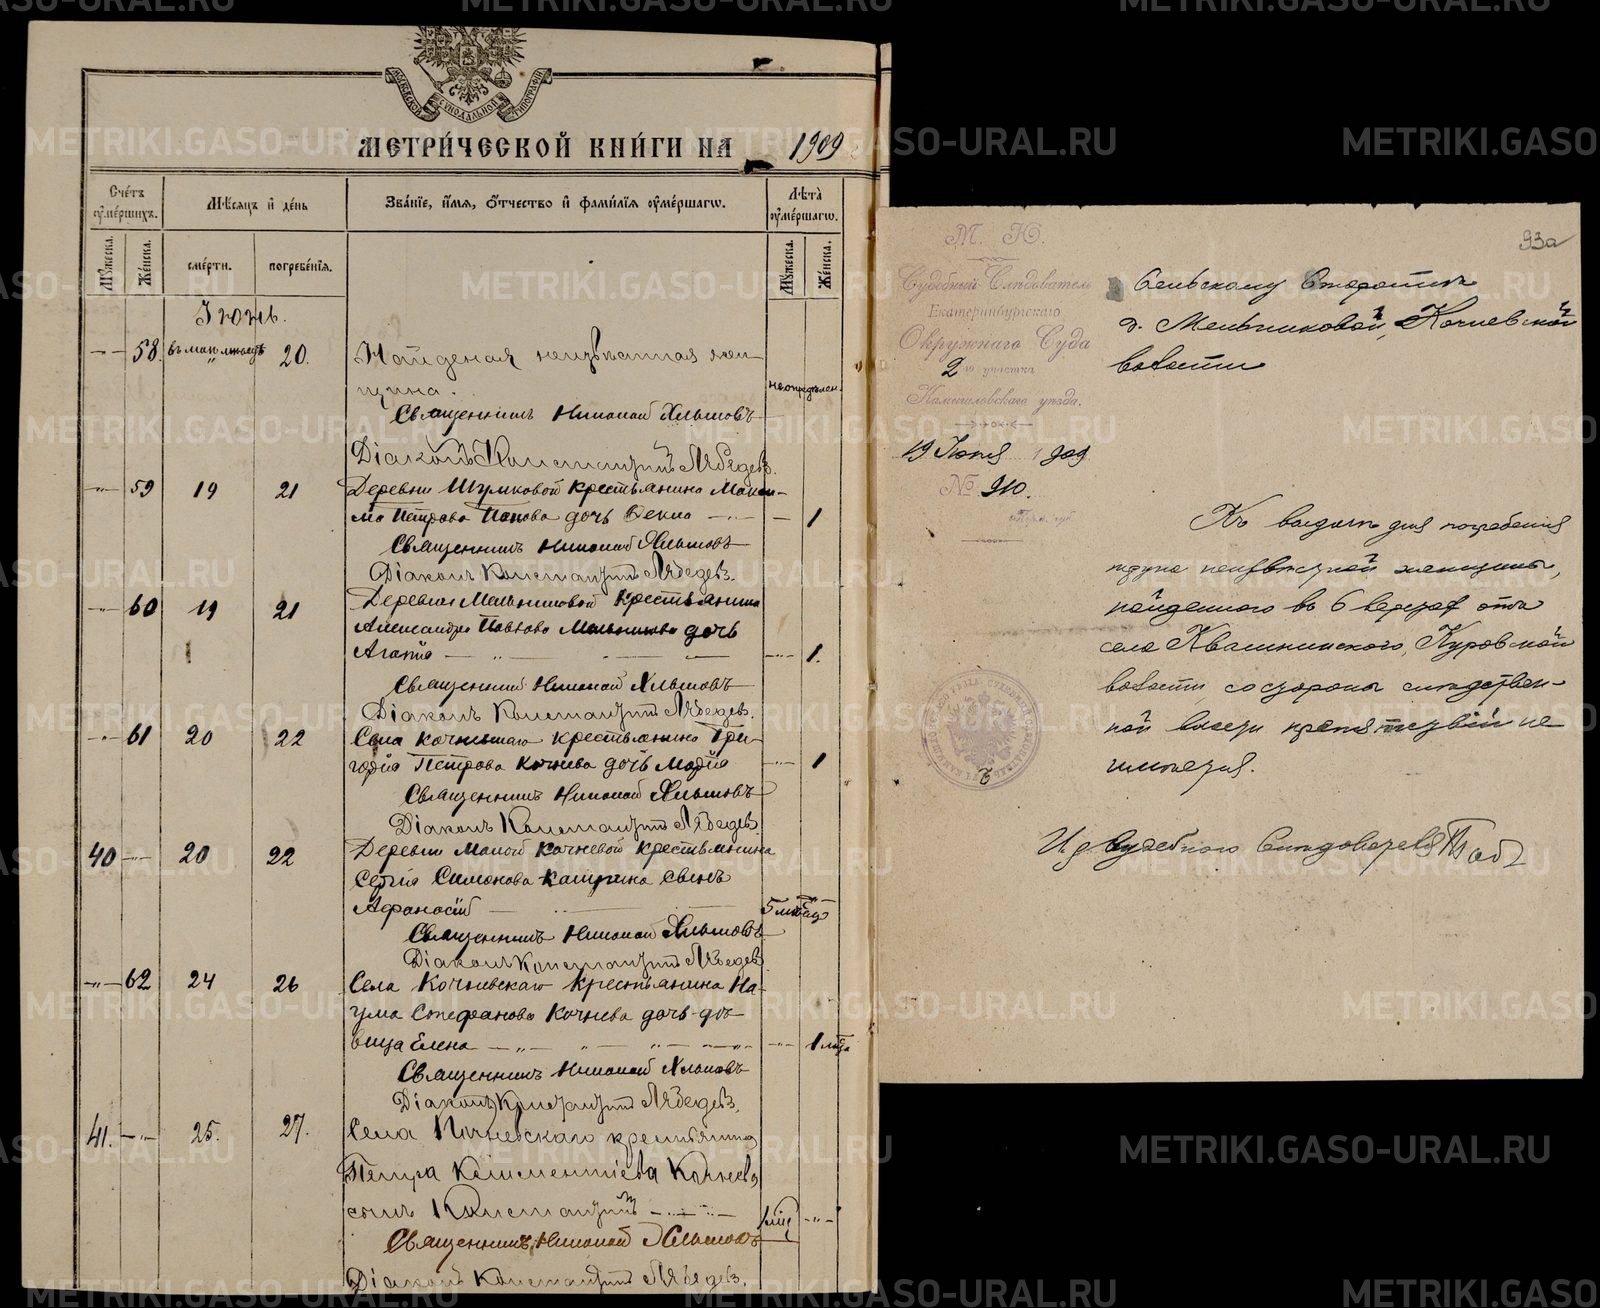 МОСКОВСКОЙ СѴНОДАЛЬНОЙ ТИПОГРАФІИ
МЕТРИ́ЧЕСКОЙ КНИ́ГИ НА 1909
Сче́тъ оу҆ме́ршихъ.
Мѣ́сяцъ и҆ де́нь
Зва́нїе, и҆́мѧ, ѻ҆́тчество и҆ фами́лїѧ оу҆ме́ршагѡ.
Лѣ́та оу҆ме́ршагѡ.
Мꙋ́жеска.
Же́нска.
сме́рти.
погребе́нїѧ.
Мꙋ́жеска.
Же́нска.
Іюнь.
58. въ мая 20. Найденая неизвѣстная жен-
щина. неопредѣлен.
Священникъ Николай Хлыновъ
Діаконъ Константинъ Лебедев.
59 19 21 Деревни Шумковой крестьянина Макси-
ма Петрова Попова дочь Фекла 1
Священникъ Николай Хлыновъ
Діаконъ Константинъ Лебедев.
60 19 21 Деревни Мельниковой крестьянина
Александра Павлова Мельникова дочь
Агапія 1.
Священникъ Николай Хлыновъ
Діаконъ Константинъ Лебедев.
61 20 22 Села Кочневскаго крестьянина Гри-
горія Петрова Кочнева дочь Марія 1
Священникъ Николай Хлыновъ
Діаконъ Константинъ Лебедев.
40 20 22 Деревни Малой Кочневой крестьянина
Сергія Симонова сынъ
Афанасій 5
Священникъ Николай Хлыновъ
Діаконъ Константинъ Лебедев
62 24 26 Села Кочневскаго крестьянина На-
ума Стефанова Кочнева дочь дѣ-
вица Елена 1
Священникъ Николай Хлыновъ
Діаконъ Константинъ Лебедев.
41. 25. 27. Села Кочневскаго крестьянина
Петра Клементіева Кочнева
сынъ Константинъ
Священникъ Николай Хлыновъ
Діаконъ Константинъ Лебедев.
93а
М. Ю.
Судебный Слѣдователь
Екатеринбургскаго
Окружнаго Суда
2 го участка
Камышловскаго уѣзда.
19 Іюня 1909
№ 910.
Сельскому Старостѣ
д. Мельниковой, Кочневской
волости
Къ выдачѣ для погребенія
трупа неизвѣстной женщины,
найденнаго въ 6 верстах отъ
села Квашнинскаго, Куровской
волости со стороны слѣдствен-
ной власти препятствій не
имѣется.
И д Судебнаго Слѣдователя
METRIKI.GASO-URAL.RU